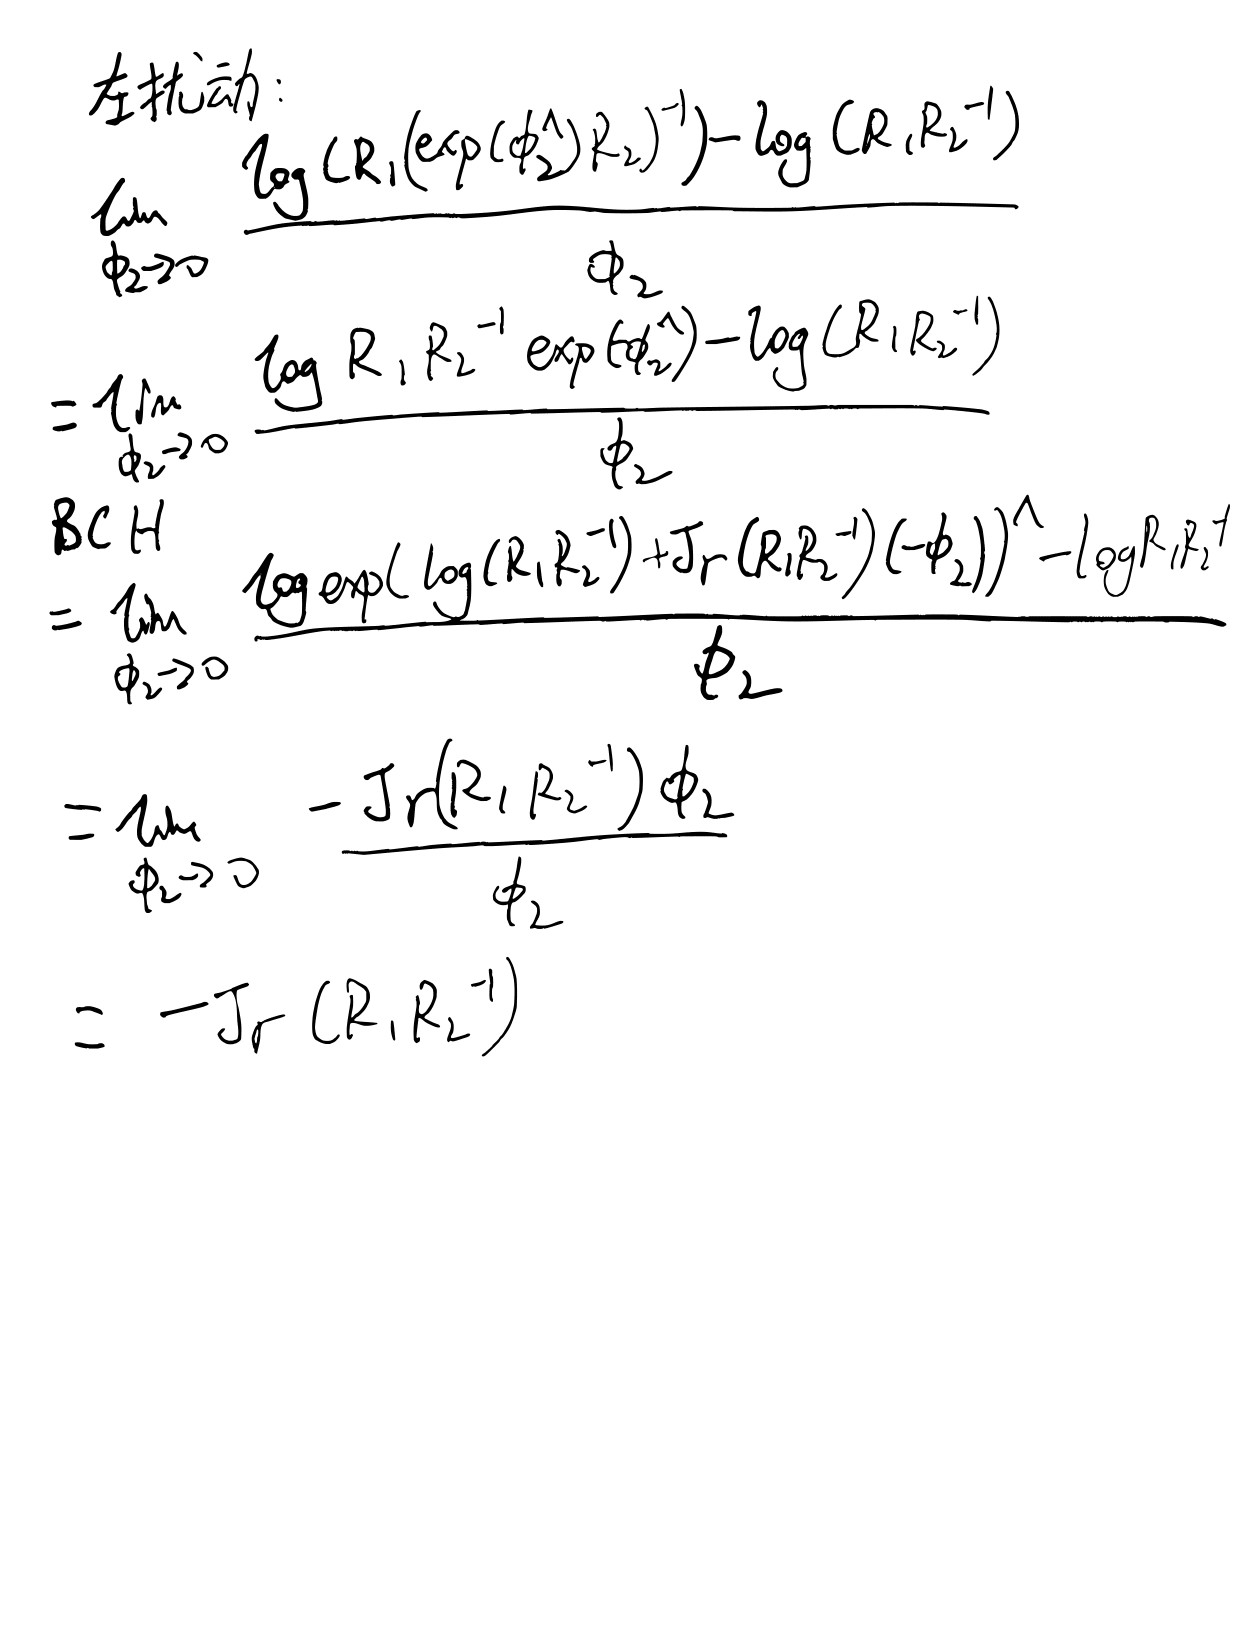 左扰动:
lim_{ϕ₂→0} \frac{log(R₁(exp(ϕ₂^∧)R₂)⁻¹) - log(R₁R₂⁻¹)}{ϕ₂}
= lim_{ϕ₂→0} \frac{log R₁R₂⁻¹ exp(-ϕ₂^∧) - log(R₁R₂⁻¹)}{ϕ₂}
BCH
= lim_{ϕ₂→0} \frac{log exp(log(R₁R₂⁻¹) + J_r(R₁R₂⁻¹)(-ϕ₂))^∧ - log R₁R₂⁻¹}{ϕ₂}
= lim_{ϕ₂→0} \frac{-J_r(R₁R₂⁻¹)ϕ₂}{ϕ₂}
= -J_r(R₁R₂⁻¹)